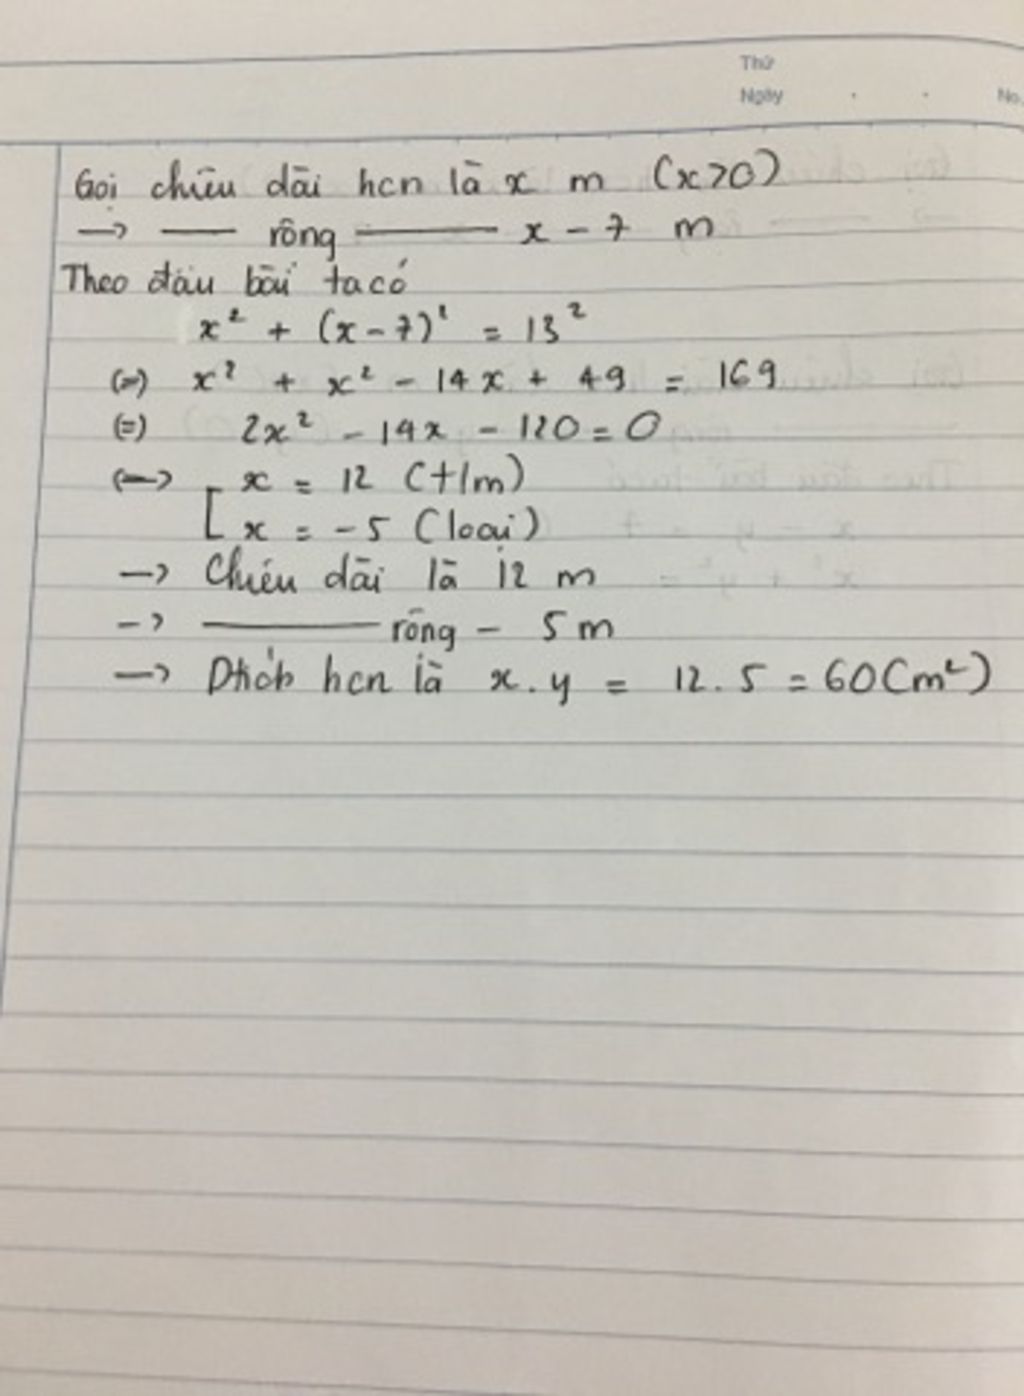 Thứ
Ngày . . No.
Gọi chiều dài hcn là x m (x>0)
→ — rộng — x - 7 m
Theo đầu bài ta có
x² + (x-7)² = 13²
(=) x² + x² - 14x + 49 = 169
(=) 2x² - 14x - 120 = 0
(=> [ x = 12 (t/m)
x = -5 (loại)
→ Chiều dài là 12 m
→ — rộng - 5 m
→ Dtích hcn là x.y = 12.5 = 60(m²)